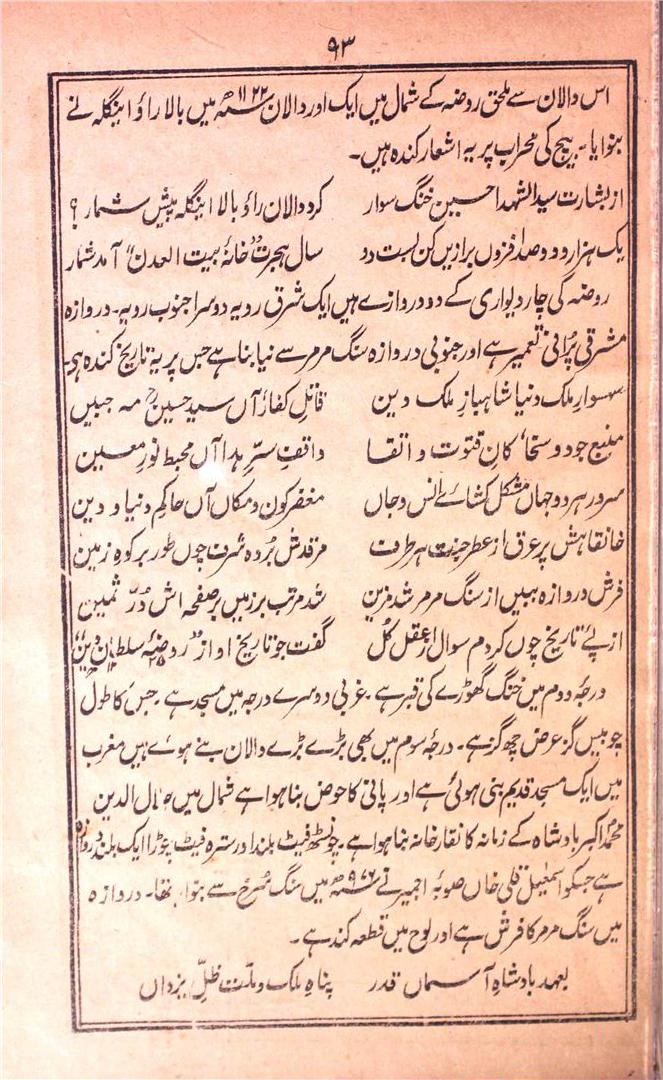 ۹۳
اس دالان سے ملحق روضہ کے شمال میں ایک اور دالان ۱۱۲۲ھ میں بالا راؤ اینگلہ نے
بنوایا۔ بیچ کی محراب پر یہ اشعار کندہ ہیں۔
از بشارت سید الشہدا حسین خنگ سوار کرد دالان راؤ بالا اینگلہ پیش شمار ؟
یک ہزار و دو صد افزوں برازیں کن بست دو سال ہجرت "خانۂ بیت العدن" آمد شمار
روضہ کی چار دیواری کے دو دروازے ہیں ایک شرق رویہ دوسرا جنوب رویہ۔ دروازہ
مشرقی پرانی تعمیر ہے اور جنوبی دروازہ سنگ مرمر سے نیا بنا ہے جس پر یہ تاریخ کندہ ہی۔
شہسوار ملک دنیا شاہباز ملک دین قاتل کفار آں سید حسین مہ جبیں
منبع جود و سخا، کان فتوت و اتقا واقف سرّ ہدا آں محیط نور معین
سرور ہر دو جہاں مشکل کشائے انس و جاں مفخر کون و مکاں آں حاکم دنیا و دین
خانقاہش پر عرق از عطر جنت ہر طرف مرقدش بُردہ شرف چوں طور بر کوہ زمین
فرش دروازہ ببیں از سنگ مرمر شد مزین شد مرتب بر زمیں بر صفحہ اش دُرّ ثمین
از پئے تاریخ چوں کردم سوال از عقل کُل گفت جو تاریخ او از "روضۂ سلطان دین"
درجۂ دوم میں خنگ گھوڑے کی قبر ہے۔ غربی دوسرے درجہ میں مسجد ہے۔ جس کا طول
چوبیس گز عرض چھ گز ہے۔ درجۂ سوم میں بھی بڑے بڑے دالان بنے ہوئے ہیں مغرب
میں ایک مسجد قدیم بنی ہوئی ہے اور پانی کا حوض بنا ہوا ہے شمال میں جلال الدین
محمد اکبر بادشاہ کے زمانہ کا نقار خانہ بنا ہوا ہے۔ چونسٹھ فیٹ بلند اور سترہ فیٹ چوڑا ایک بلند دروازہ
ہے جسکو اسمعیل قلی خاں صوبۂ اجمیر نے ۹۷۶ھ میں سنگ سُرخ سے بنوایا تھا۔ دروازہ
میں سنگ مرمر کا فرش ہے اور لوح میں قطعہ کند ہے۔
بعہد بادشاہ آسماں قدر پناہ ملک و ملّت ظلّ یزداں